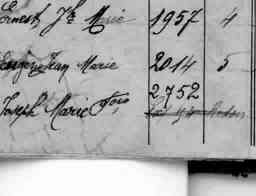 Ernest J^h Marie 1957 4
Jean Marie 2014 5
2752
Joseph Marie Fçois